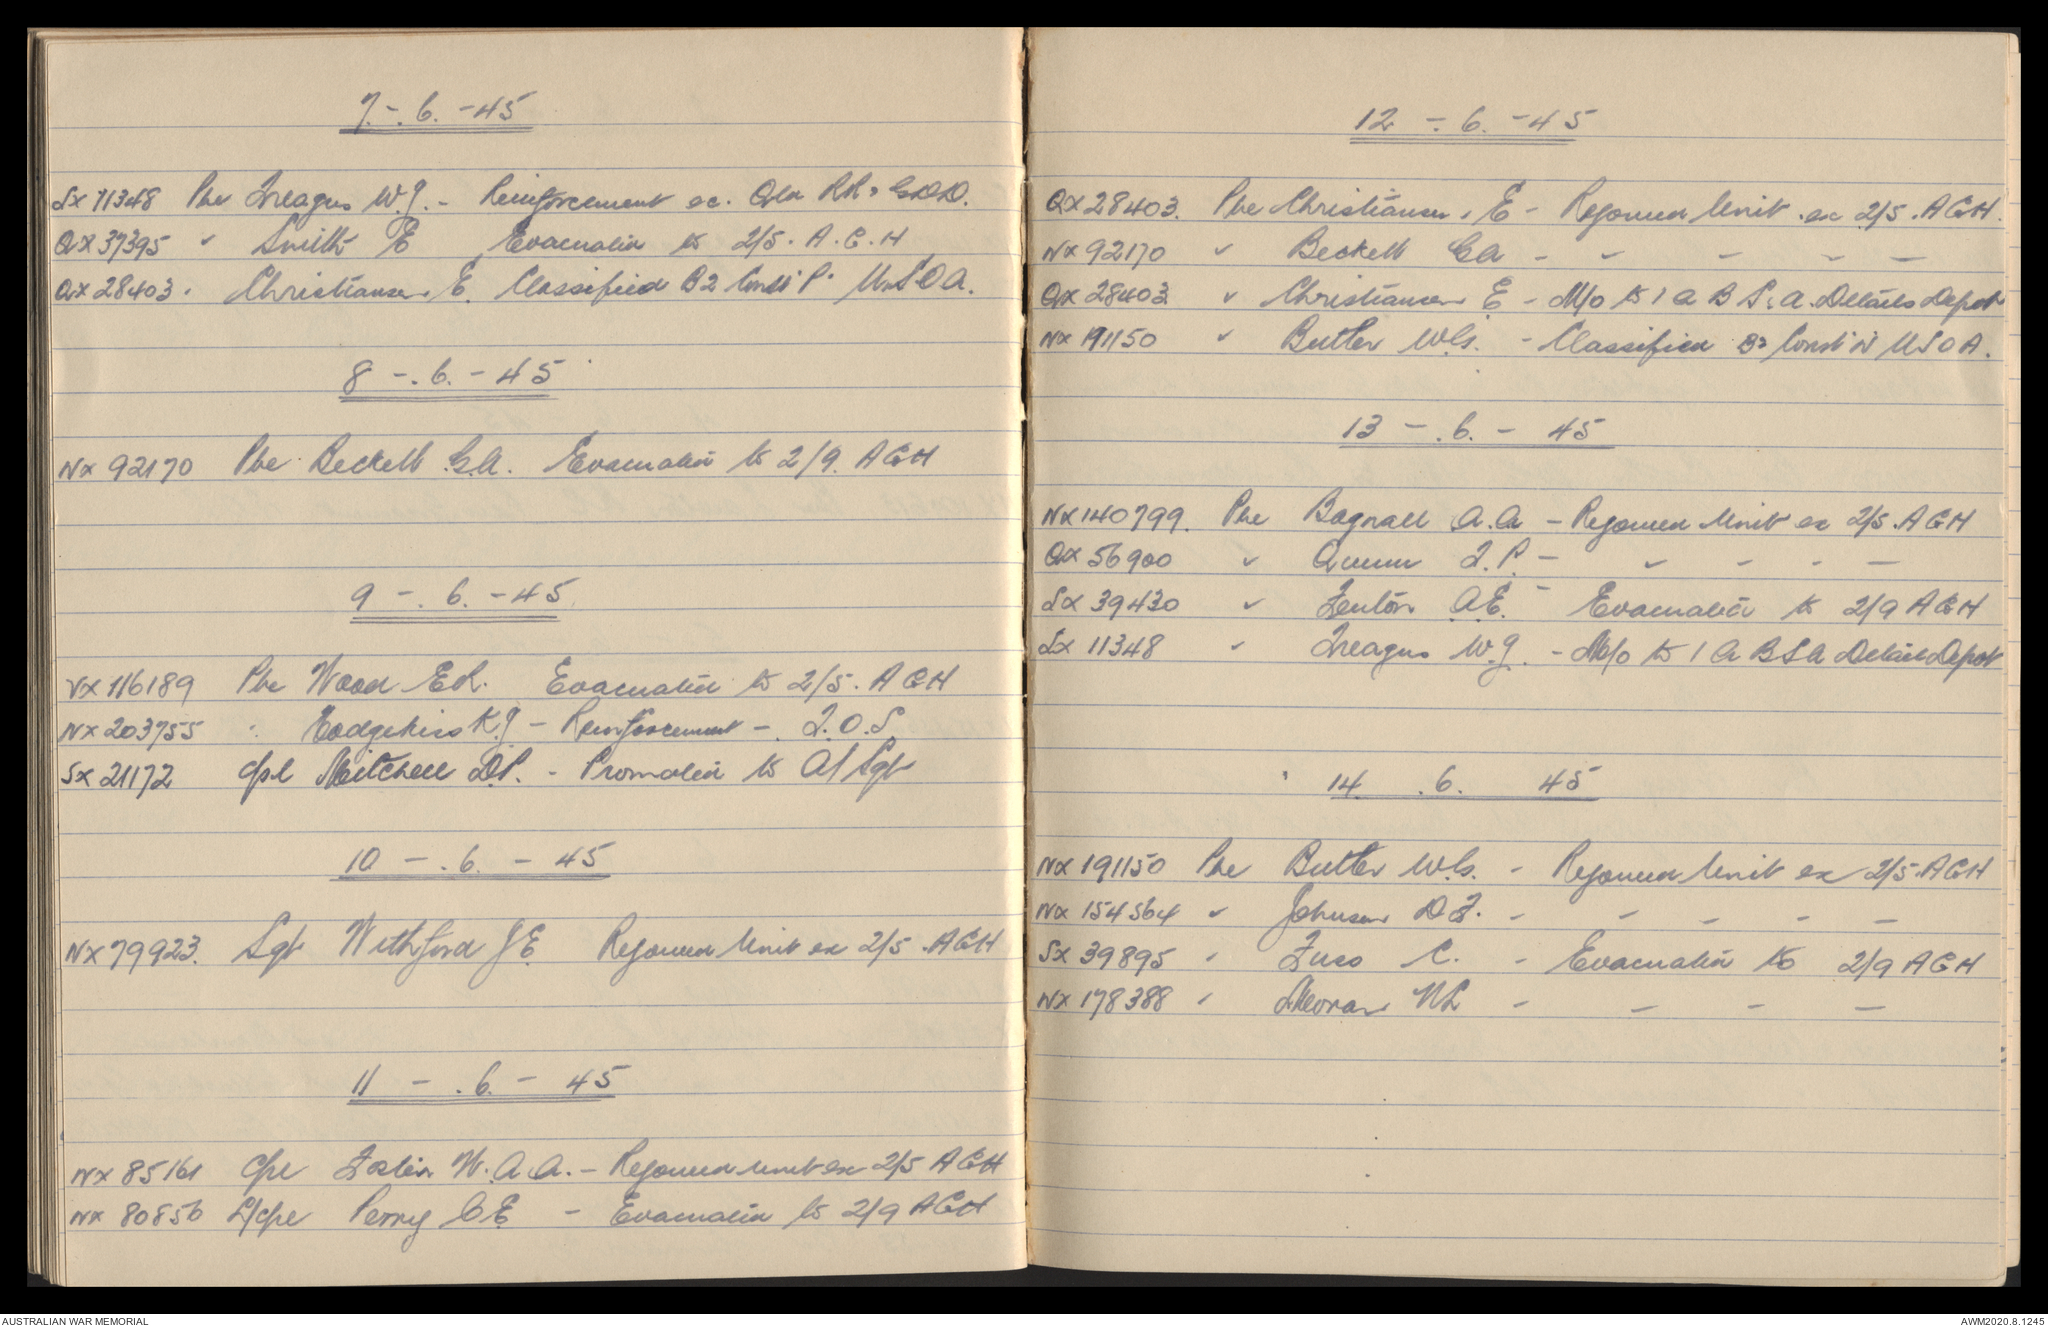 7.-.6.-45
SX 11348 Pte Treagus W.J. - Reinforcement ex. Qld R.R. & G.D.D.
QX 37395 " Smith E Evacuated to 2/5. A.G.H
QX 28403. Christiansen. E. Classified B2 Cond P. M.S.O.A.
8-.6.-45
NX 92170 Pte Beckett G.A. Evacuated to 2/9. AGH
9-.6.-45
VX 116189 Pte Wood E.R. Evacuated to 2/5. AGH
NX 203755 " Hodgekiss K.J - Reinforcement - T.O.S.
SX 21172 Cpl Mitchell D.P. - Promoted to A/Sgt
10-.6.-45
NX 79923. Sgt Withford J E Rejoined Unit ex 2/5. AGH
11-.6.-45
NX 85161 Cpl Foster W.A.A. - Rejoined Unit ex 2/5 AGH
NX 80856 L/Cpl Perry C E - Evacuated to 2/9 AGH
12-.6.-45
QX 28403. Pte Christiansen. E - Rejoined Unit. ex 2/5. AGH.
NX 92170 " Beckett GA - " - - -
QX 28403 " Christiansen E - M/o to 1 A B S.A. Details Depot
NX 191150 " Butler W.G. - Classified B2 Cond N MSOA.
13-.6.-45
NX 140799. Pte Bagnall A.A - Rejoined Unit ex 2/5. AGH
QX 56900 " Quinn T.P. - " - - -
SX 39430 " Fenton A.E. - Evacuated to 2/9 AGH
SX 11348 " Treagus W.J. - M/o to 1 A B S A Details Depot
14. .6. 45
NX 191150 Pte Butler W.G. - Rejoined Unit ex 2/5. AGH
NX 154564 " Johnson D.F. - - - - -
SX 39895 " Fuss C. - Evacuated to 2/9 AGH
NX 178388 " Moran N L - - - -
AUSTRALIAN WAR MEMORIAL
AWM2020.8.1245